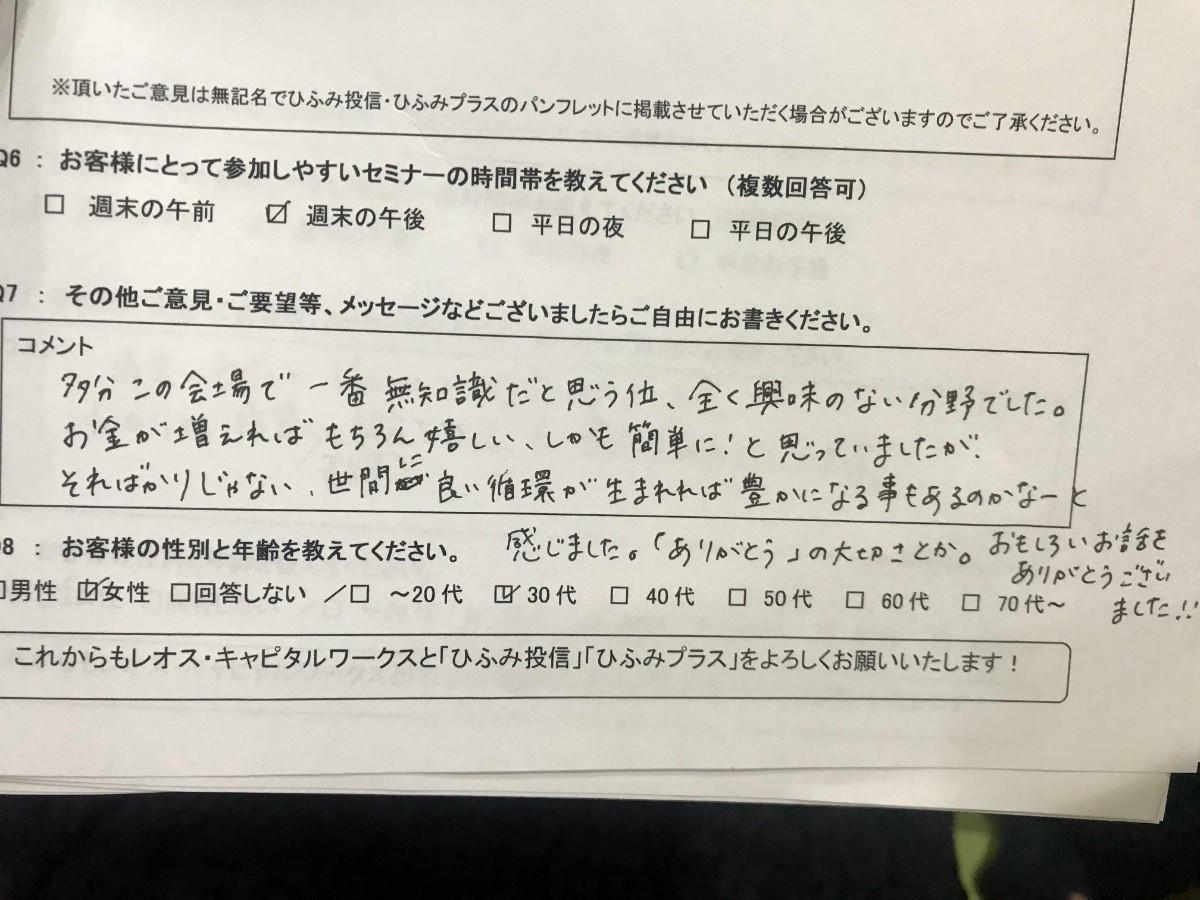 ※頂いたご意見は無記名でひふみ投信・ひふみプラスのパンフレットに掲載させていただく場合がございますのでご了承ください。
Q6 : お客様にとって参加しやすいセミナーの時間帯を教えてください (複数回答可)
□ 週末の午前 ☑ 週末の午後 □ 平日の夜 □ 平日の午後
Q7 : その他ご意見・ご要望等、メッセージなどございましたらご自由にお書きください。
コメント
多分この会場で一番無知識だと思う位、全く興味のない分野でした。
お金が増えればもちろん嬉しい、しかも簡単に!と思っていましたが、
そればかりじゃない、世間に良い循環が生まれれば豊かになる事もあるのかなーと
感じました。「ありがとう」の大切さとか。おもしろいお話を
ありがとうござい
ました!!
Q8 : お客様の性別と年齢を教えてください。
□男性 ☑女性 □回答しない /□ ~20代 ☑ 30代 □ 40代 □ 50代 □ 60代 □ 70代~
これからもレオス・キャピタルワークスと「ひふみ投信」「ひふみプラス」をよろしくお願いいたします!